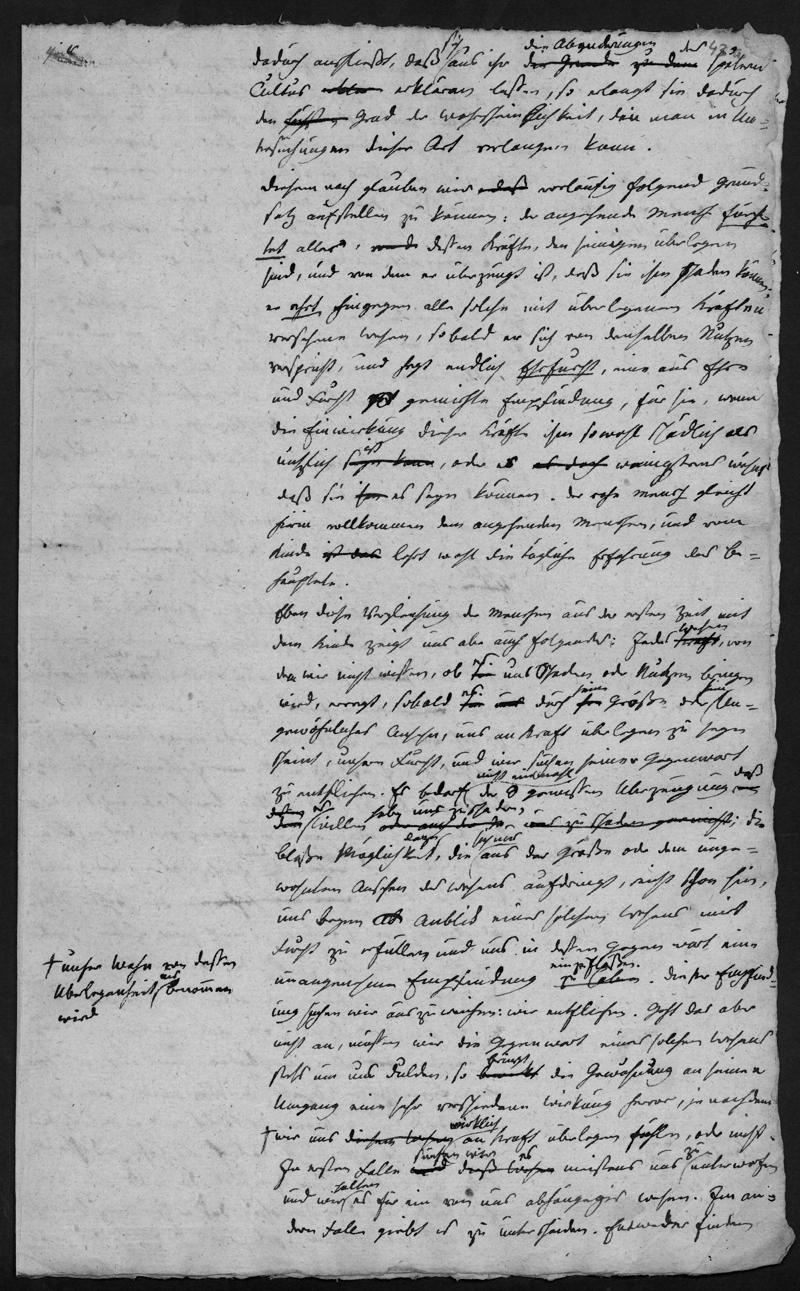 dadurch ausschließt, daß sich aus ihr die Abänderungen des spätern
Cultus erklären lassen, so erlangt sie dadurch
den Grad der Wahrscheinlichkeit, den man in Un=
tersuchungen dieser Art verlangen kann.
Diesem nach glauben wir vorläufig folgend Grund=
satz aufstellen zu können: der angehende Mensch fürch=
tet alles, dessen Kräfte, den seinigen überlegen
sind, und von dem er überzeugt ist, daß sie ihm schaden können,
er ehrt hingegen alle solche mit überlegenen Kräften
versehene Wesen, sobald er sich von denselben Nutzen
verspricht, und hegt endlich Ehrfurcht, eine aus Ehre
und Furcht gemischte Empfindung, für sie, wenn
die Einwirkung dieser Kräfte ihm sowohl schädlich als
nützlich ist, oder er wenigstens wähnt
daß sie es seyn können. Der rohe Mensch gleicht
hierin vollkommen dem angehenden Menschen, und vom
Kinde lehrt wohl die tägliche Erfahrung das Be=
hauptete.
Eben diese Vergleichung des Menschen aus der ersten Zeit mit
dem Kinde zeigt uns aber auch folgendes: Jedes Wesen, von
dem wir nicht wissen, ob es uns Schaden oder Nutzen bringen
wird, erregt, sobald es durch seine Größe oder sein Un=
gewöhnliches Ansehn, uns an Kraft überlegen zu seyn
scheint, unsere Furcht, und wir suchen seiner Gegenwart
zu entfliehen. Es bedarf nicht einmahl der gewissen Überzeugung daß
es Willen habe uns zu schaden, die
bloße Möglichkeit, die sich uns aus der Größe oder dem unge=
wohnten Ansehen des Wesens aufdringt, reicht schon hin,
uns beym Anblick eines solchen Wesens mit
Furcht zu erfüllen und uns in dessen Gegenwart eine
unangenehme Empfindung einzuflößen. Dieser Empfind=
ung suchen wir auszuweichen: wir entfliehen. Geht das aber
nicht an, müssen wir die Gegenwart eines solchen Wesens
stets um uns dulden, so bringt die Gewöhnung an seinen
Umgang eine sehr verschiedene Wirkung hervor, je nachdem
† wir uns wirklich an Kraft überlegen fühlen, oder nicht.
Im ersten Falle suchen wir es meistens uns zu unterwerfen
und halten es für ein von uns abhängiges Wesen. Im an=
dern Falle giebt es zu unterscheiden. Entweder finden
† unser Wahn von dessen
Überlegenheit uns benommen
wird